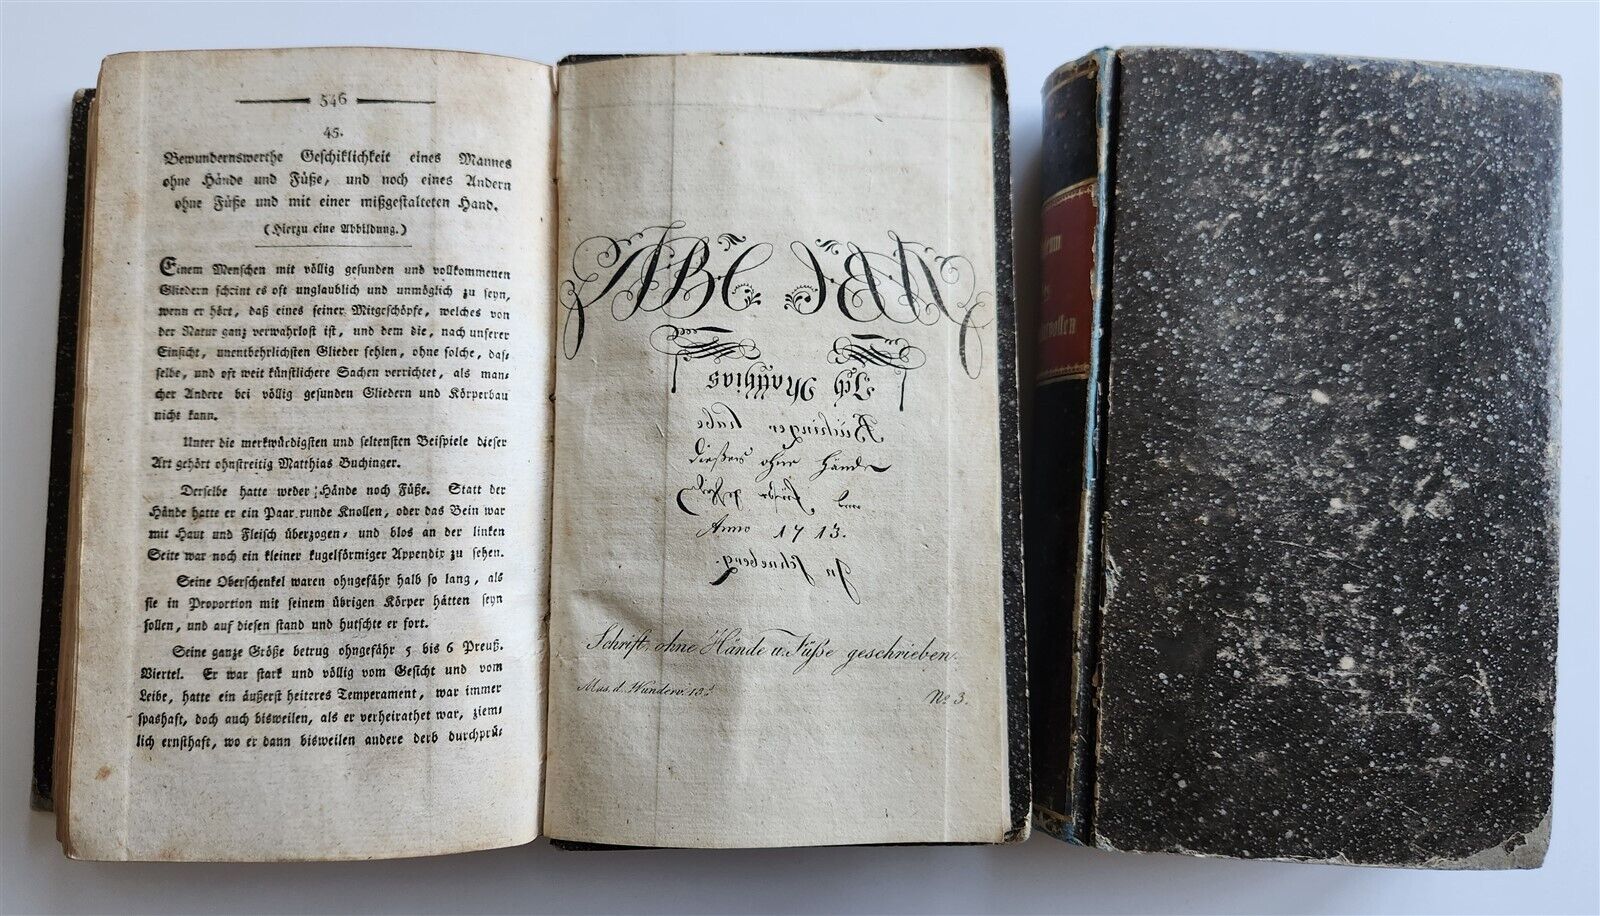 546
45.
Bewundernswerthe Geschiklichkeit eines Mannes
ohne Hände und Füße, und noch eines Andern
ohne Füße und mit einer mißgestalteten Hand.
(Hierzu eine Abbildung.)
Einem Menschen mit völlig gesunden und vollkommenen
Gliedern scheint es oft unglaublich und unmöglich zu seyn,
wenn er hört, daß eines seiner Mitgeschöpfe, welches von
der Natur ganz verwahrlost ist, und dem die, nach unserer
Einsicht, unentbehrlichsten Glieder fehlen, ohne solche, das-
selbe, und oft weit künstlichere Sachen verrichtet, als man-
cher Andere bei völlig gesunden Gliedern und Körperbau
nicht kann.
Unter die merkwürdigsten und seltensten Beispiele dieser
Art gehört ohnstreitig Matthias Buchinger.
Derselbe hatte weder Hände noch Füße. Statt der
Hände hatte er ein Paar runde Knollen, oder das Bein war
mit Haut und Fleisch überzogen, und blos an der linken
Seite war noch ein kleiner kugelförmiger Appendix zu sehen.
Seine Oberschenkel waren ohngefähr halb so lang, als
sie in Proportion mit seinem übrigen Körper hätten seyn
sollen, und auf diesen stand und hutschte er fort.
Seine ganze Größe betrug ohngefähr 5 bis 6 Preuß.
Viertel. Er war stark und völlig vom Gesicht und vom
Leibe, hatte ein äußerst heiteres Temperament, war immer
spashaft, doch auch bisweilen, als er verheirathet war, ziem-
lich ernsthaft, wo er dann bisweilen andere derb durchprü-
ABC ABC
Ich Matthias
Buchinger habe
dießes ohne Hände
und Füeße
Anno 1713.
In Schneberg.
Schrift, ohne Hände u. Füße geschrieben.
Mus. d. Wunderv.
No 3.